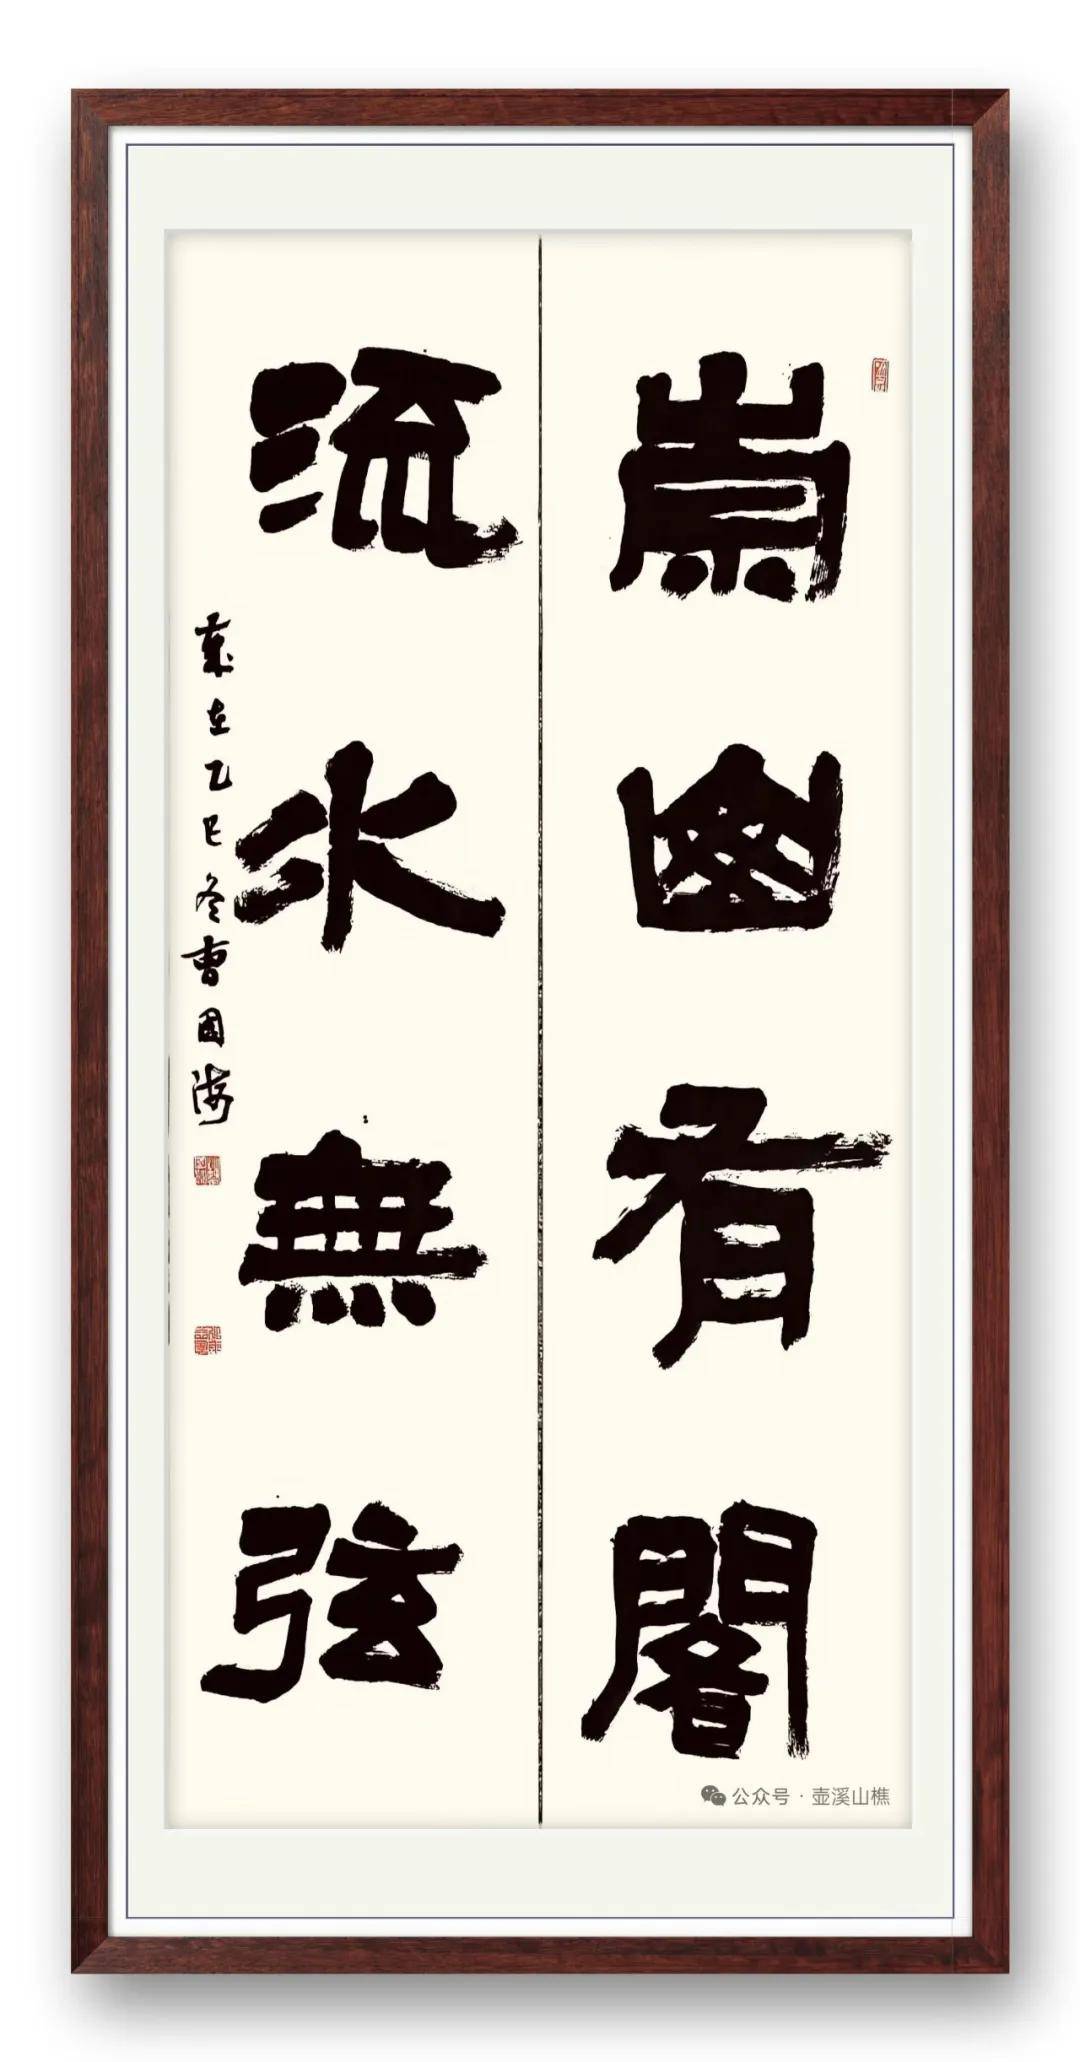 崇幽有閣
流水無弦
歲在乙巳冬曹國海
公众号·壶溪山樵